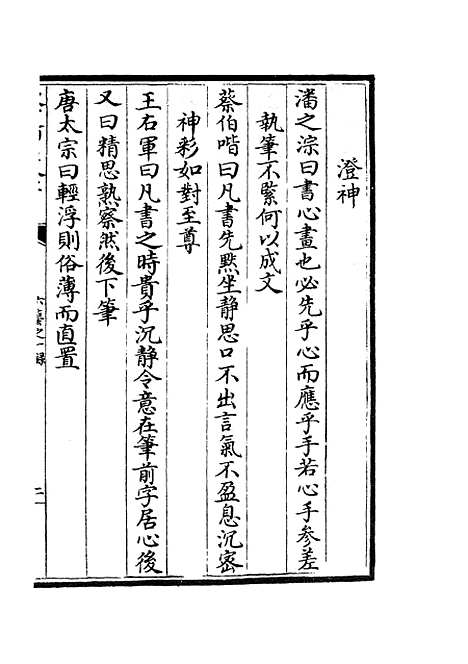 澄神
潘之淙曰書心畫也必先乎心而應乎手若心手參差
執筆不緊何以成文
蔡伯喈曰凡書先默坐静思口不出言氣不盈息沉密
神彩如對至尊
王右軍曰凡書之時貴乎沉静令意在筆前字居心後
又曰精思熟察然後下筆
唐太宗曰輕浮則俗薄而直置
六藝之一録
二